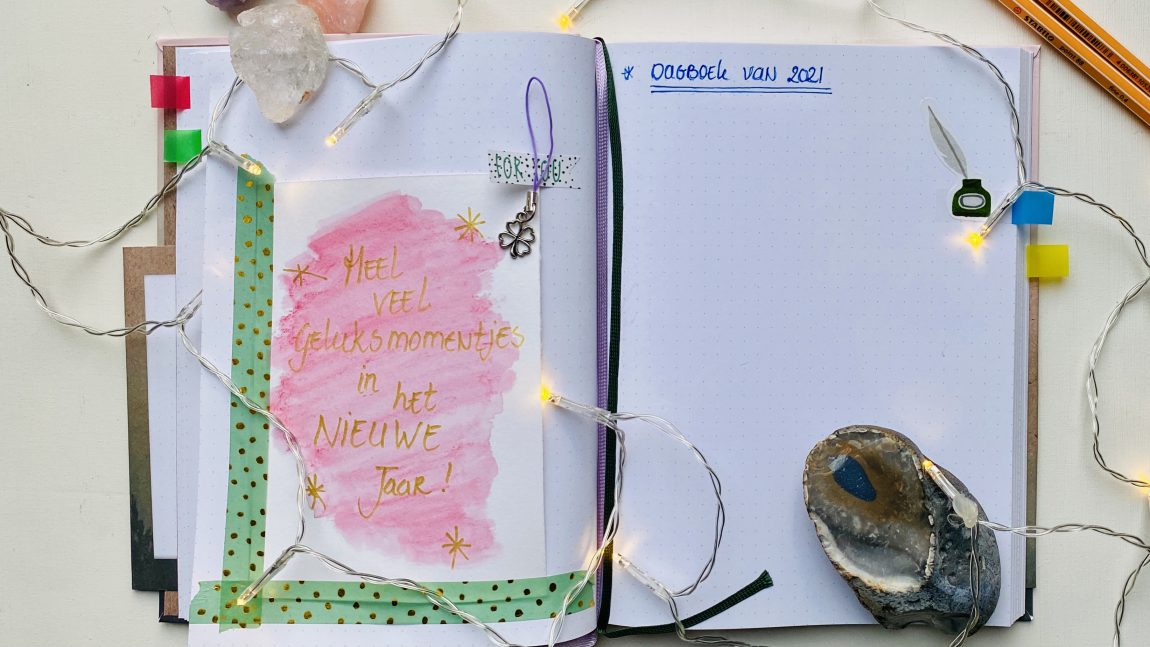 FOR YOU
HEEL
VEEL
geluksmomentjes
in het
NIEUWE
Jaar!
* DAGBOEK VAN 2021
STABILO